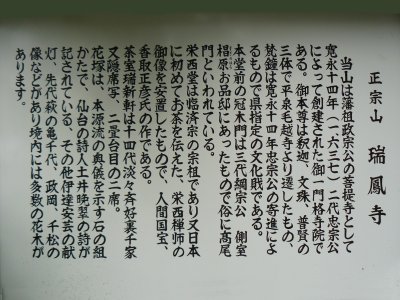 正宗山　瑞鳳寺
当山は藩祖政宗公の菩提寺として
寛永十四年(一六三七)二代忠宗公
によって創建された御一門格寺院で
ある。御本尊は釈迦、文珠、普賢の
三体で平泉毛越寺より遷したもの、
梵鐘は寛永十四年忠宗公の寄進によ
るもので県指定の文化財である。
本堂前の冠木門は三代綱宗公　側室
椙原お品邸にあったもので俗に高尾
門といわれている。
栄西堂は臨済宗の宗祖であり又日本
に初めてお茶を伝えた、栄西禅師の
御像を安置したもので、人間国宝、
香取正彦氏の作である。
茶室瑞新軒は十四代淡々斉好裏千家
又隠席写、二畳台目の二席。
花塚は、本源流の奥儀を示す石の組
かたで、仙台の詩人土井晩翠の詩が
記されている、その他伊達安芸の献
灯、先代萩の亀千代、政岡、千松の
像などがあり境内には多数の花木が
あります。